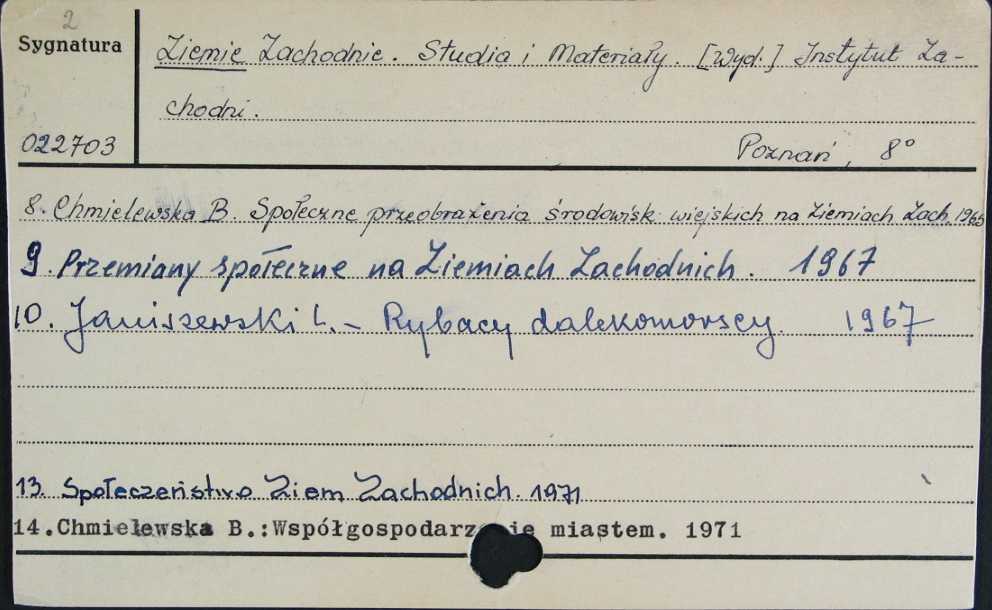 2
Sygnatura
Ziemie Zachodnie. Studia i Materiały. [Wyd.] Instytut Za-
chodni.
022703
Poznań, 8°
8. Chmielewska B. Społeczne przeobrażenia środowisk wiejskich na Ziemiach Zach. 1965
9. Przemiany społeczne na Ziemiach Zachodnich. 1967
10. Janiszewski L. - Rybacy dalekomorscy. 1967
13. Społeczeństwo Ziem Zachodnich. 1971
14. Chmielewska B.: miastem. 1971